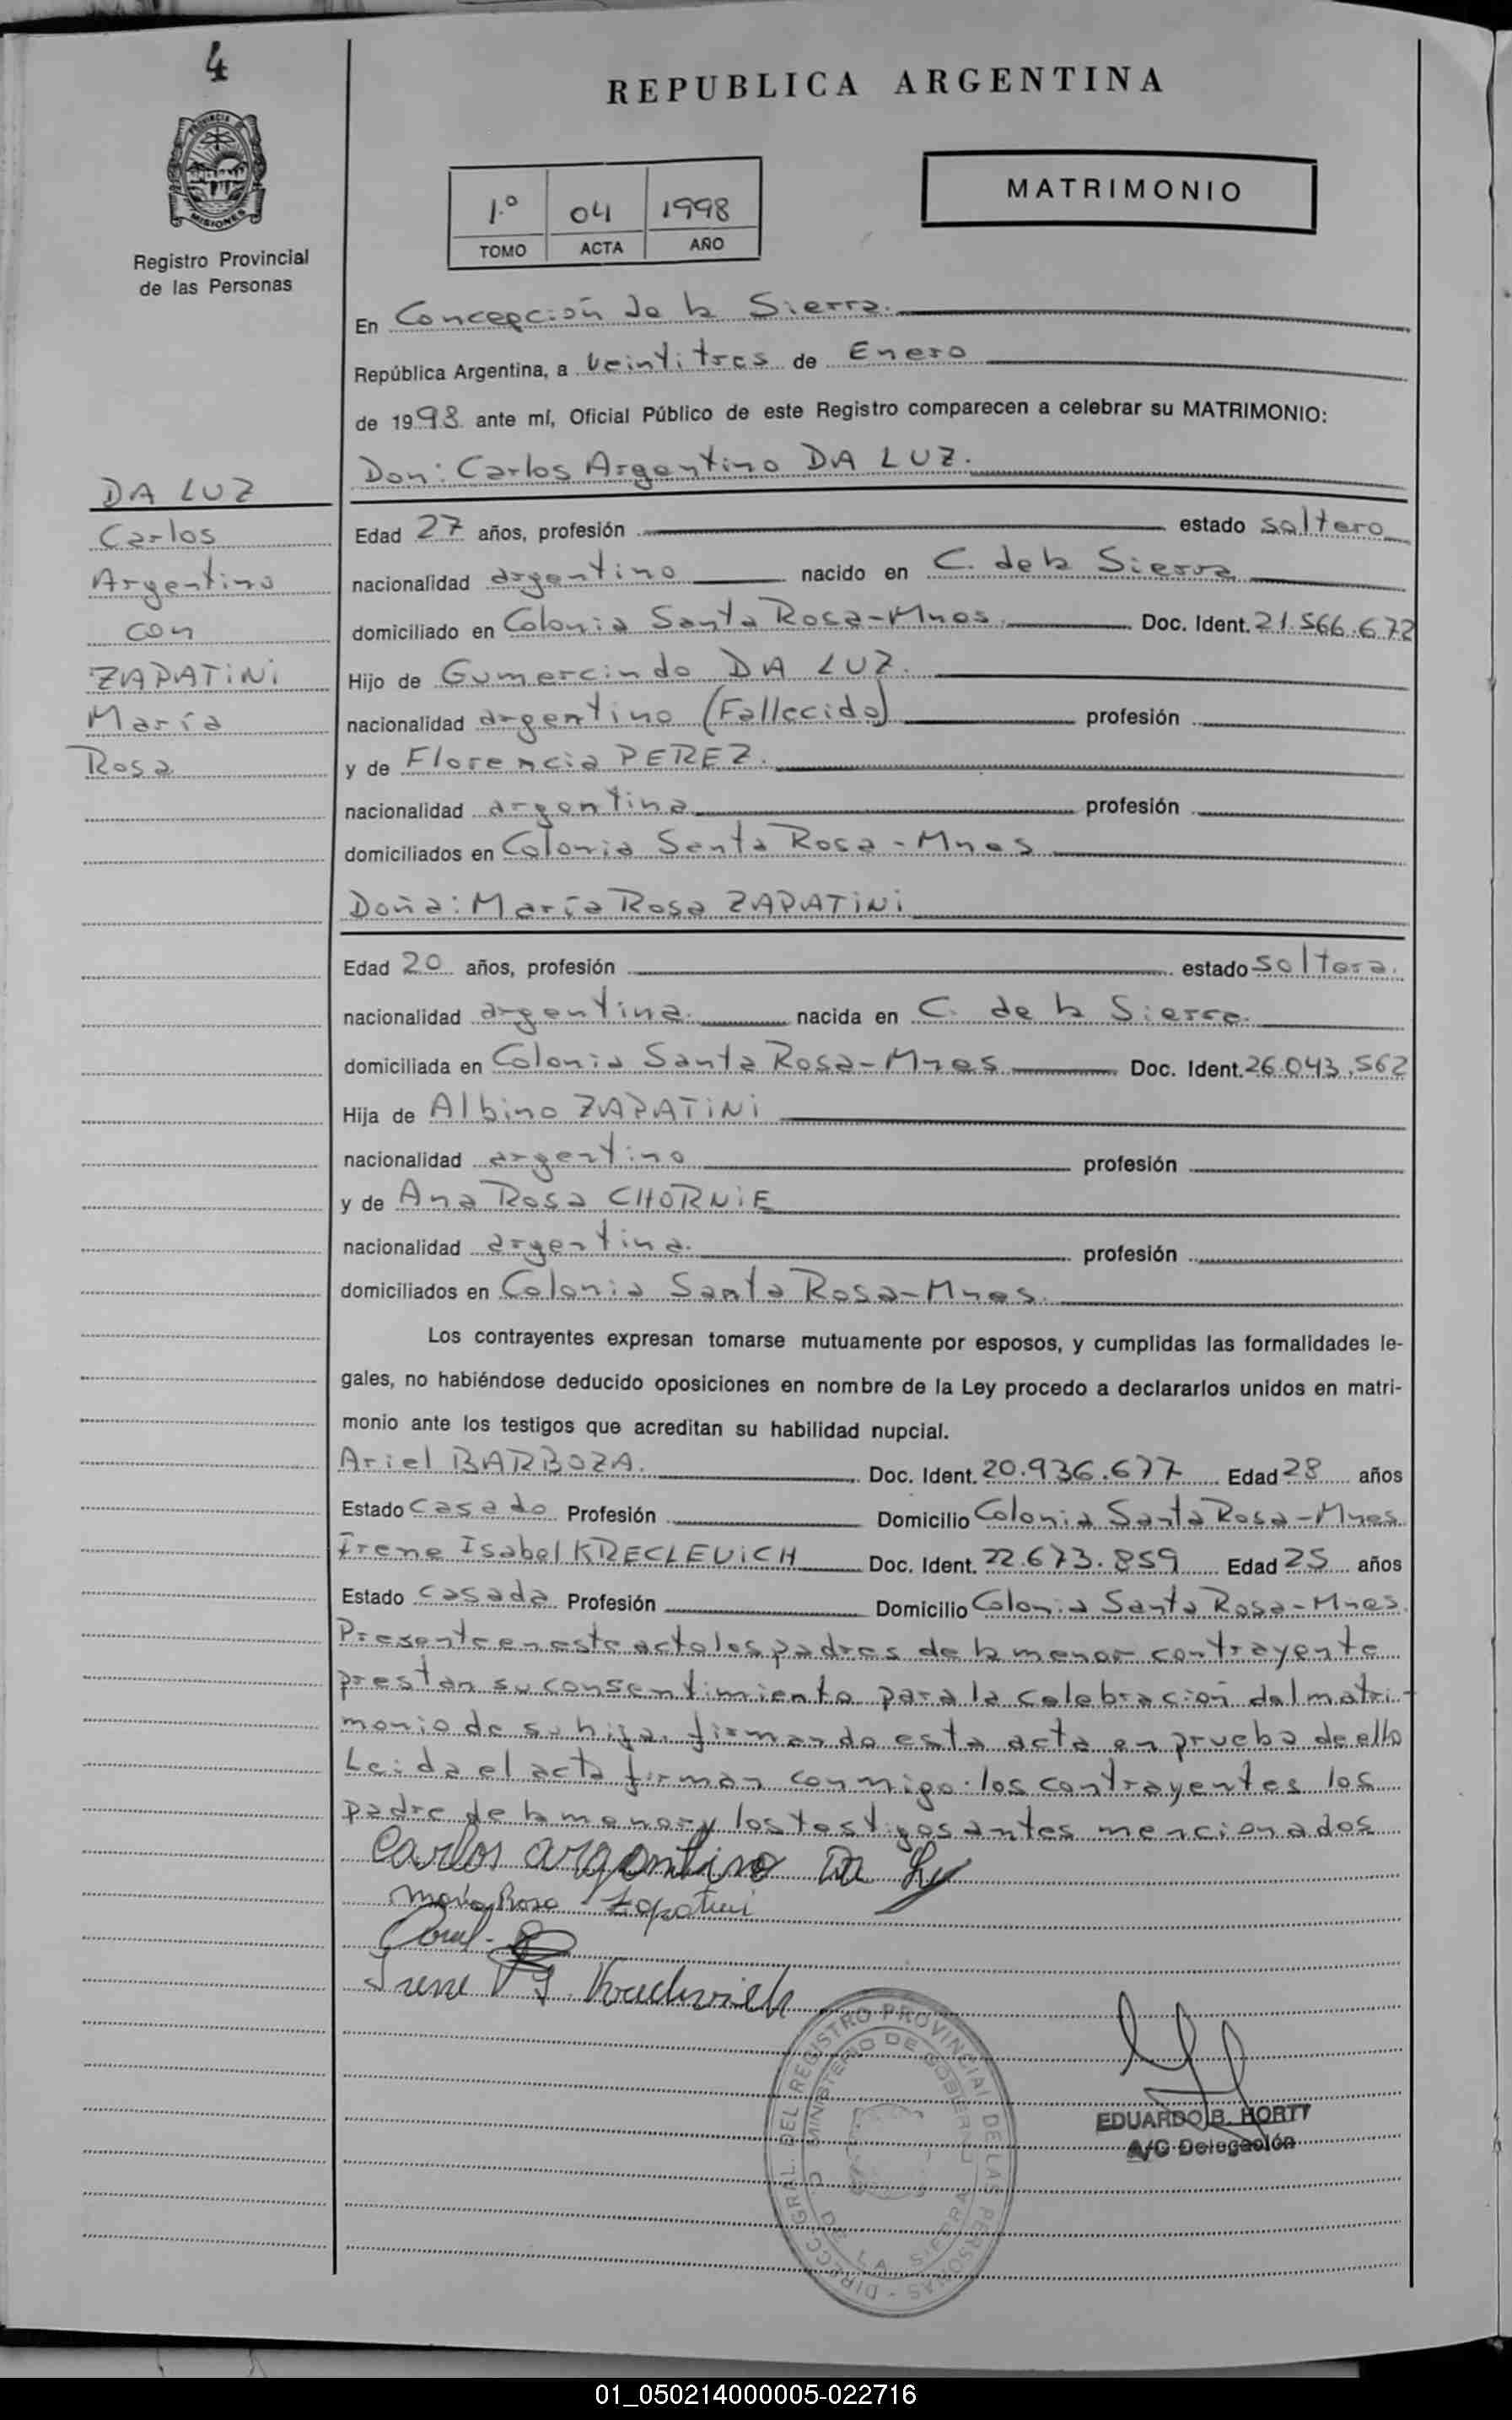 4
REPUBLICA ARGENTINA
PROVINCIA
MISIONES
Registro Provincial
de las Personas
1º 04 1998
TOMO ACTA AÑO
MATRIMONIO
En Concepción de la Sierra.
República Argentina, a veintitres de Enero
de 1998 ante mí, Oficial Público de este Registro comparecen a celebrar su MATRIMONIO:
Don: Carlos Argentino DA LUZ.
DA LUZ
Carlos
Argentino
con
ZAPATiNi
María
Rosa
Edad 27 años, profesión estado soltero
nacionalidad argentino nacido en C. de la Sierra
domiciliado en Colonia Santa Rosa-Mnes. Doc. Ident. 21.566.672
Hijo de Gumercindo DA LUZ.
nacionalidad argentino (Fallecido) profesión
y de Florencia PEREZ.
nacionalidad argentina profesión
domiciliados en Colonia Santa Rosa - Mnes
Doña: María Rosa ZAPATiNi
Edad 20 años, profesión estado soltera.
nacionalidad argentina. nacida en C. de la Sierra.
domiciliada en Colonia Santa Rosa-Mnes Doc. Ident. 26.043.562
Hija de Albino ZAPATiNi
nacionalidad argentino profesión
y de Ana Rosa CHORNiE
nacionalidad argentina. profesión
domiciliados en Colonia Santa Rosa-Mnes.
Los contrayentes expresan tomarse mutuamente por esposos, y cumplidas las formalidades le-
gales, no habiéndose deducido oposiciones en nombre de la Ley procedo a declararlos unidos en matri-
monio ante los testigos que acreditan su habilidad nupcial.
Ariel BARBOZA. Doc. Ident. 20.936.677 Edad 28 años
Estado casado Profesión Domicilio Colonia Santa Rosa-Mnes.
Irene Isabel KRECLEVICH Doc. Ident. 22.673.859 Edad 25 años
Estado casada Profesión Domicilio Colonia Santa Rosa-Mnes.
Presente en este acto los padres de la menor contrayente
prestan su consentimiento para la celebración del matri-
monio de su hija. firmando esta acta en prueba de ello
Leida el acta firman conmigo: los contrayentes los
padre de la menor y los testigos antes mencionados
Carlos argentino Da Luz
María Rosa Zapatini
Irene I. Kreclevich
DIRECC. GRAL. DEL REGISTRO PROVINCIAL DE LAS PERSONAS
MINISTERIO DE GOBIERNO
DE LA SIERRA
EDUARDO B. HORTT
A/C Delegación
01_050214000005-022716